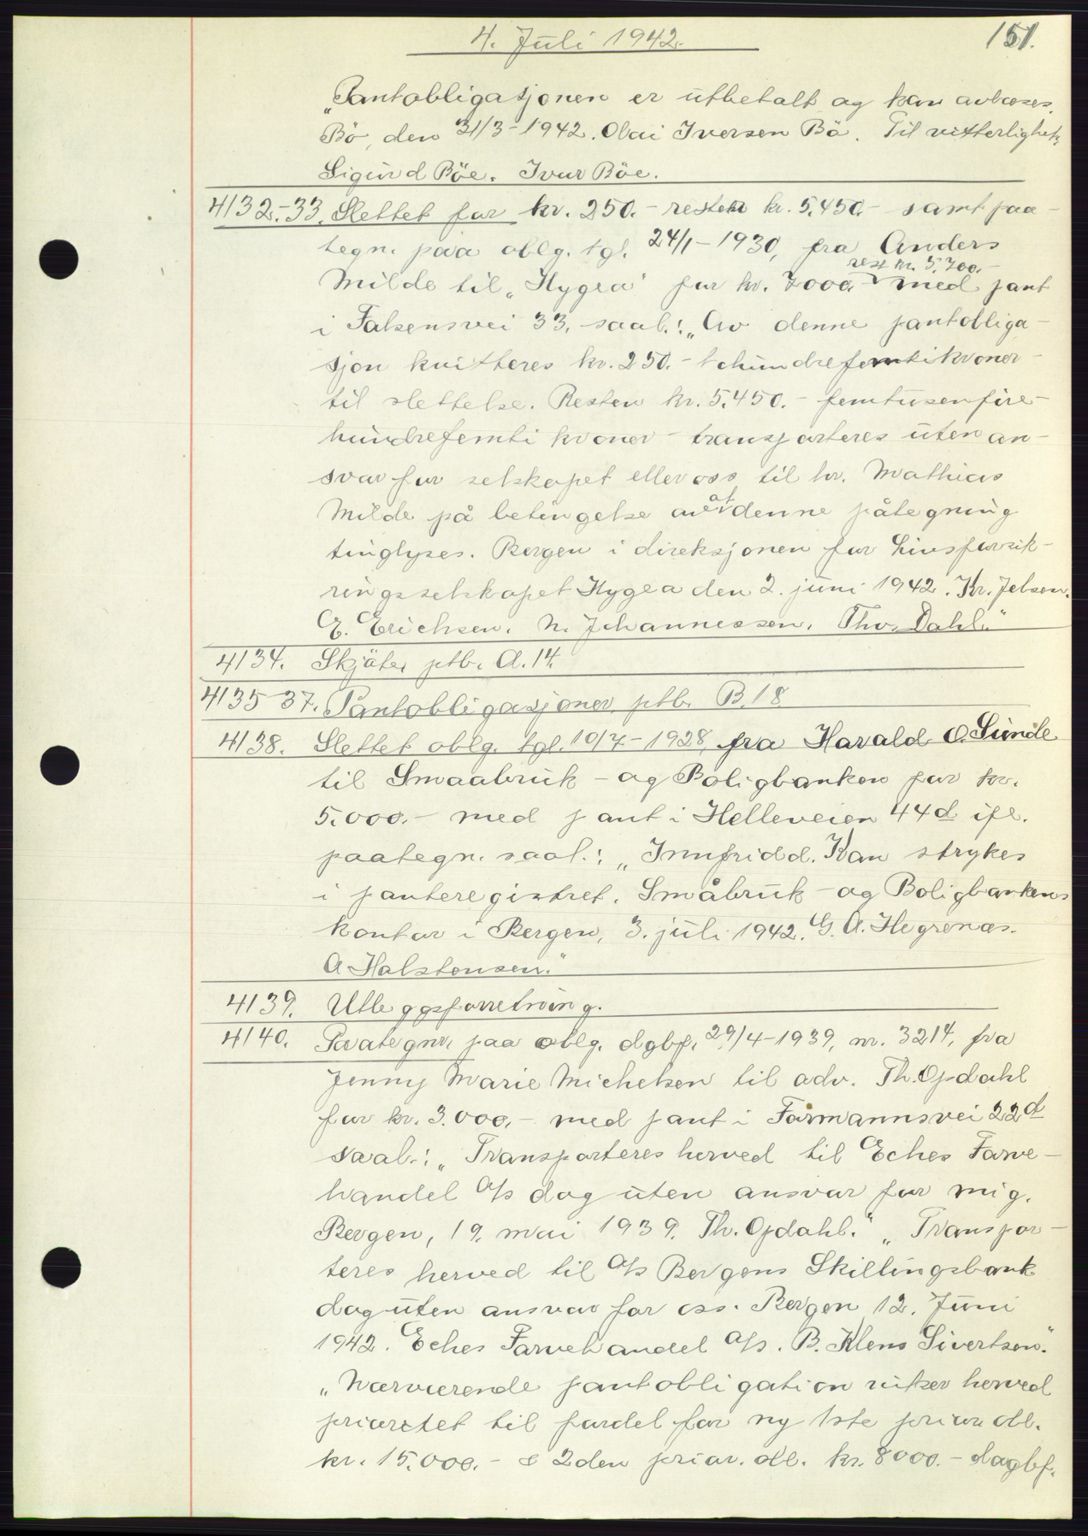 4. Juli 1942.
151.
"Pantobligasjonen er utbetalt og kan avlæses.
Bö, den 31/3-1942. Olai Iversen Bö. Til vitterlighet:
Sigurd Böe. Ivar Böe.
4132.-33. Slettet for kr. 250.- resten kr. 5.450.- samt paa-
tegn. paa oblg. tgl. 24/1-1930, fra Anders
rest kr. 5.700.-
Milde til "Hygea" for kr. 7000.- med pant
i Falsensvei 33, saal.: "Av denne pantobliga-
sjon kvitteres kr. 250.- tohundrefemtikroner-
til slettelse. Resten kr. 5.450.- femtusenfire-
hundrefemti kroner - transporteres uten an-
svar for selskapet eller oss til hr. Mathias
Milde på betingelse av at denne påtegning
tinglyses. Bergen i direksjonen for Livsforsik-
ringsselskapet Hygea den 2. juni 1942. Kr. Jebsen.
E. Erichsen. N. Johannessen. Tho. Dahl."
4134. Skjöte, ptb. A. 14.
4135-37. Pantobligasjoner ptb. B. 18
4138. Slettet oblg. tgl. 10/7-1928, fra Harald O. Sunde
til Smaabruk- og Boligbanken for kr.
5.000.- med pant i Helleveien 44d ifl.
paategn. saal.: "Innfridd. Kan strykes
i panteregistret. Småbruk- og Boligbankens
kontor i Bergen, 3. juli 1942. G. A. Hegrenæs.
A Halstensen."
4139. Utleggsforretning.
4140. Paategn. paa oblg. dgbf. 29/4-1939, nr. 3214, fra
Jenny Marie Michelsen til adv. Th. Opdahl
for kr. 3.000,- med pant i Formannsvei 22d
saal.: "Transporteres herved til Eches Farve-
handel A/S dog uten ansvar for mig.
Bergen, 19. mai 1939. Th. Opdahl." "Transpor-
teres herved til A/S Bergens Skillingsbank
dog uten ansvar for oss. Bergen 12. Juni
1942. Eches Farvehandel A/S. B. Klens Sivertsen."
"Nærværende pantobligation viker herved
prioritet til fordel for ny 1ste prior. obl.
kr. 15.000.- & 2den prior. obl. kr. 8000.- dagbf.